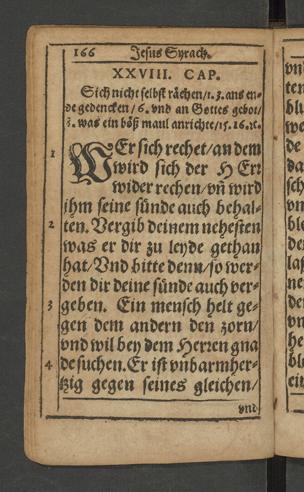 166 Jesus Syrach.
XXVIII. CAP.
Sich nicht selbst rächen/1.3. ans en-
de gedencken/6. vnd an Gottes gebot/
8. was ein böß maul anrichte/15.16.ꝛc.
1 WEr sich rechet/an dem
wird sich der HErr
wider rechen/vn̄ wird
jhm seine sünde auch behal-
2 ten. Vergib deinem nehesten
was er dir zu leyde gethan
hat/Vnd bitte denn/so wer-
den dir deine sünde auch ver-
3 geben. Ein mensch helt ge-
gen dem andern den zorn/
vnd wil bey dem Herren gna
4 de suchen. Er ist vnbarmher-
tzig gegen seines gleichen/
vnd